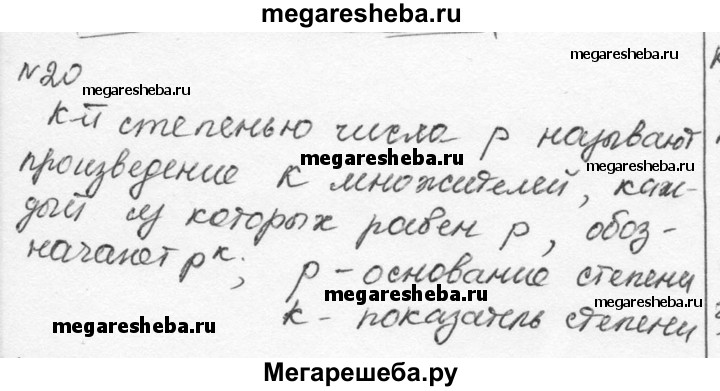 megaresheba.ru
N20 megaresheba.ru megaresheba.ru
к-й степенью числа p называют
megaresheba.ru megaresheba.ru
произведение к множителей, каж-
дый из которых равен p, обоз-
начают pᵏ; p - основание степени
megaresheba.ru megaresheba.ru
megaresheba.ru к - показатель степени
Мегарешеба.ру